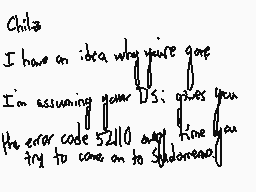 Chilz
I have an idea why you're gone
I'm assuming your DSi gives you
the error code 52110 every time you
try to come on to Sudomemo